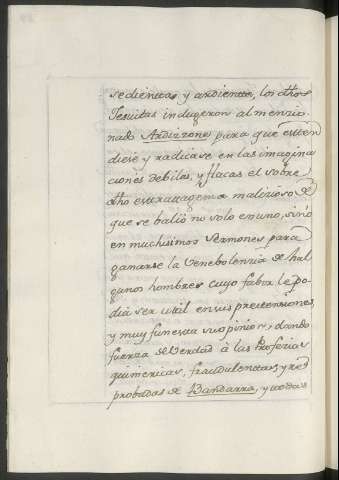 sedientas y ardientes, los dhos
Jesuitas indugeron al menzio
nado Ardizzone para que esten
diese y radicase en las imagina
ciones debiles, y flacas el sobre
dho estrattagema malizioso, de
que se balió no solo en uno, sinó
en muchisimos Sermones para
ganarse la Venebolenzia de hal
gunos hombres cuyo fabor le po
dia ser util en sus pretensiones,
y muy funesta su opinion; dando
fuerza de Verdad à las Profezias
quimericas, fraudulentas, y re
probadas de Bandarra, y todas